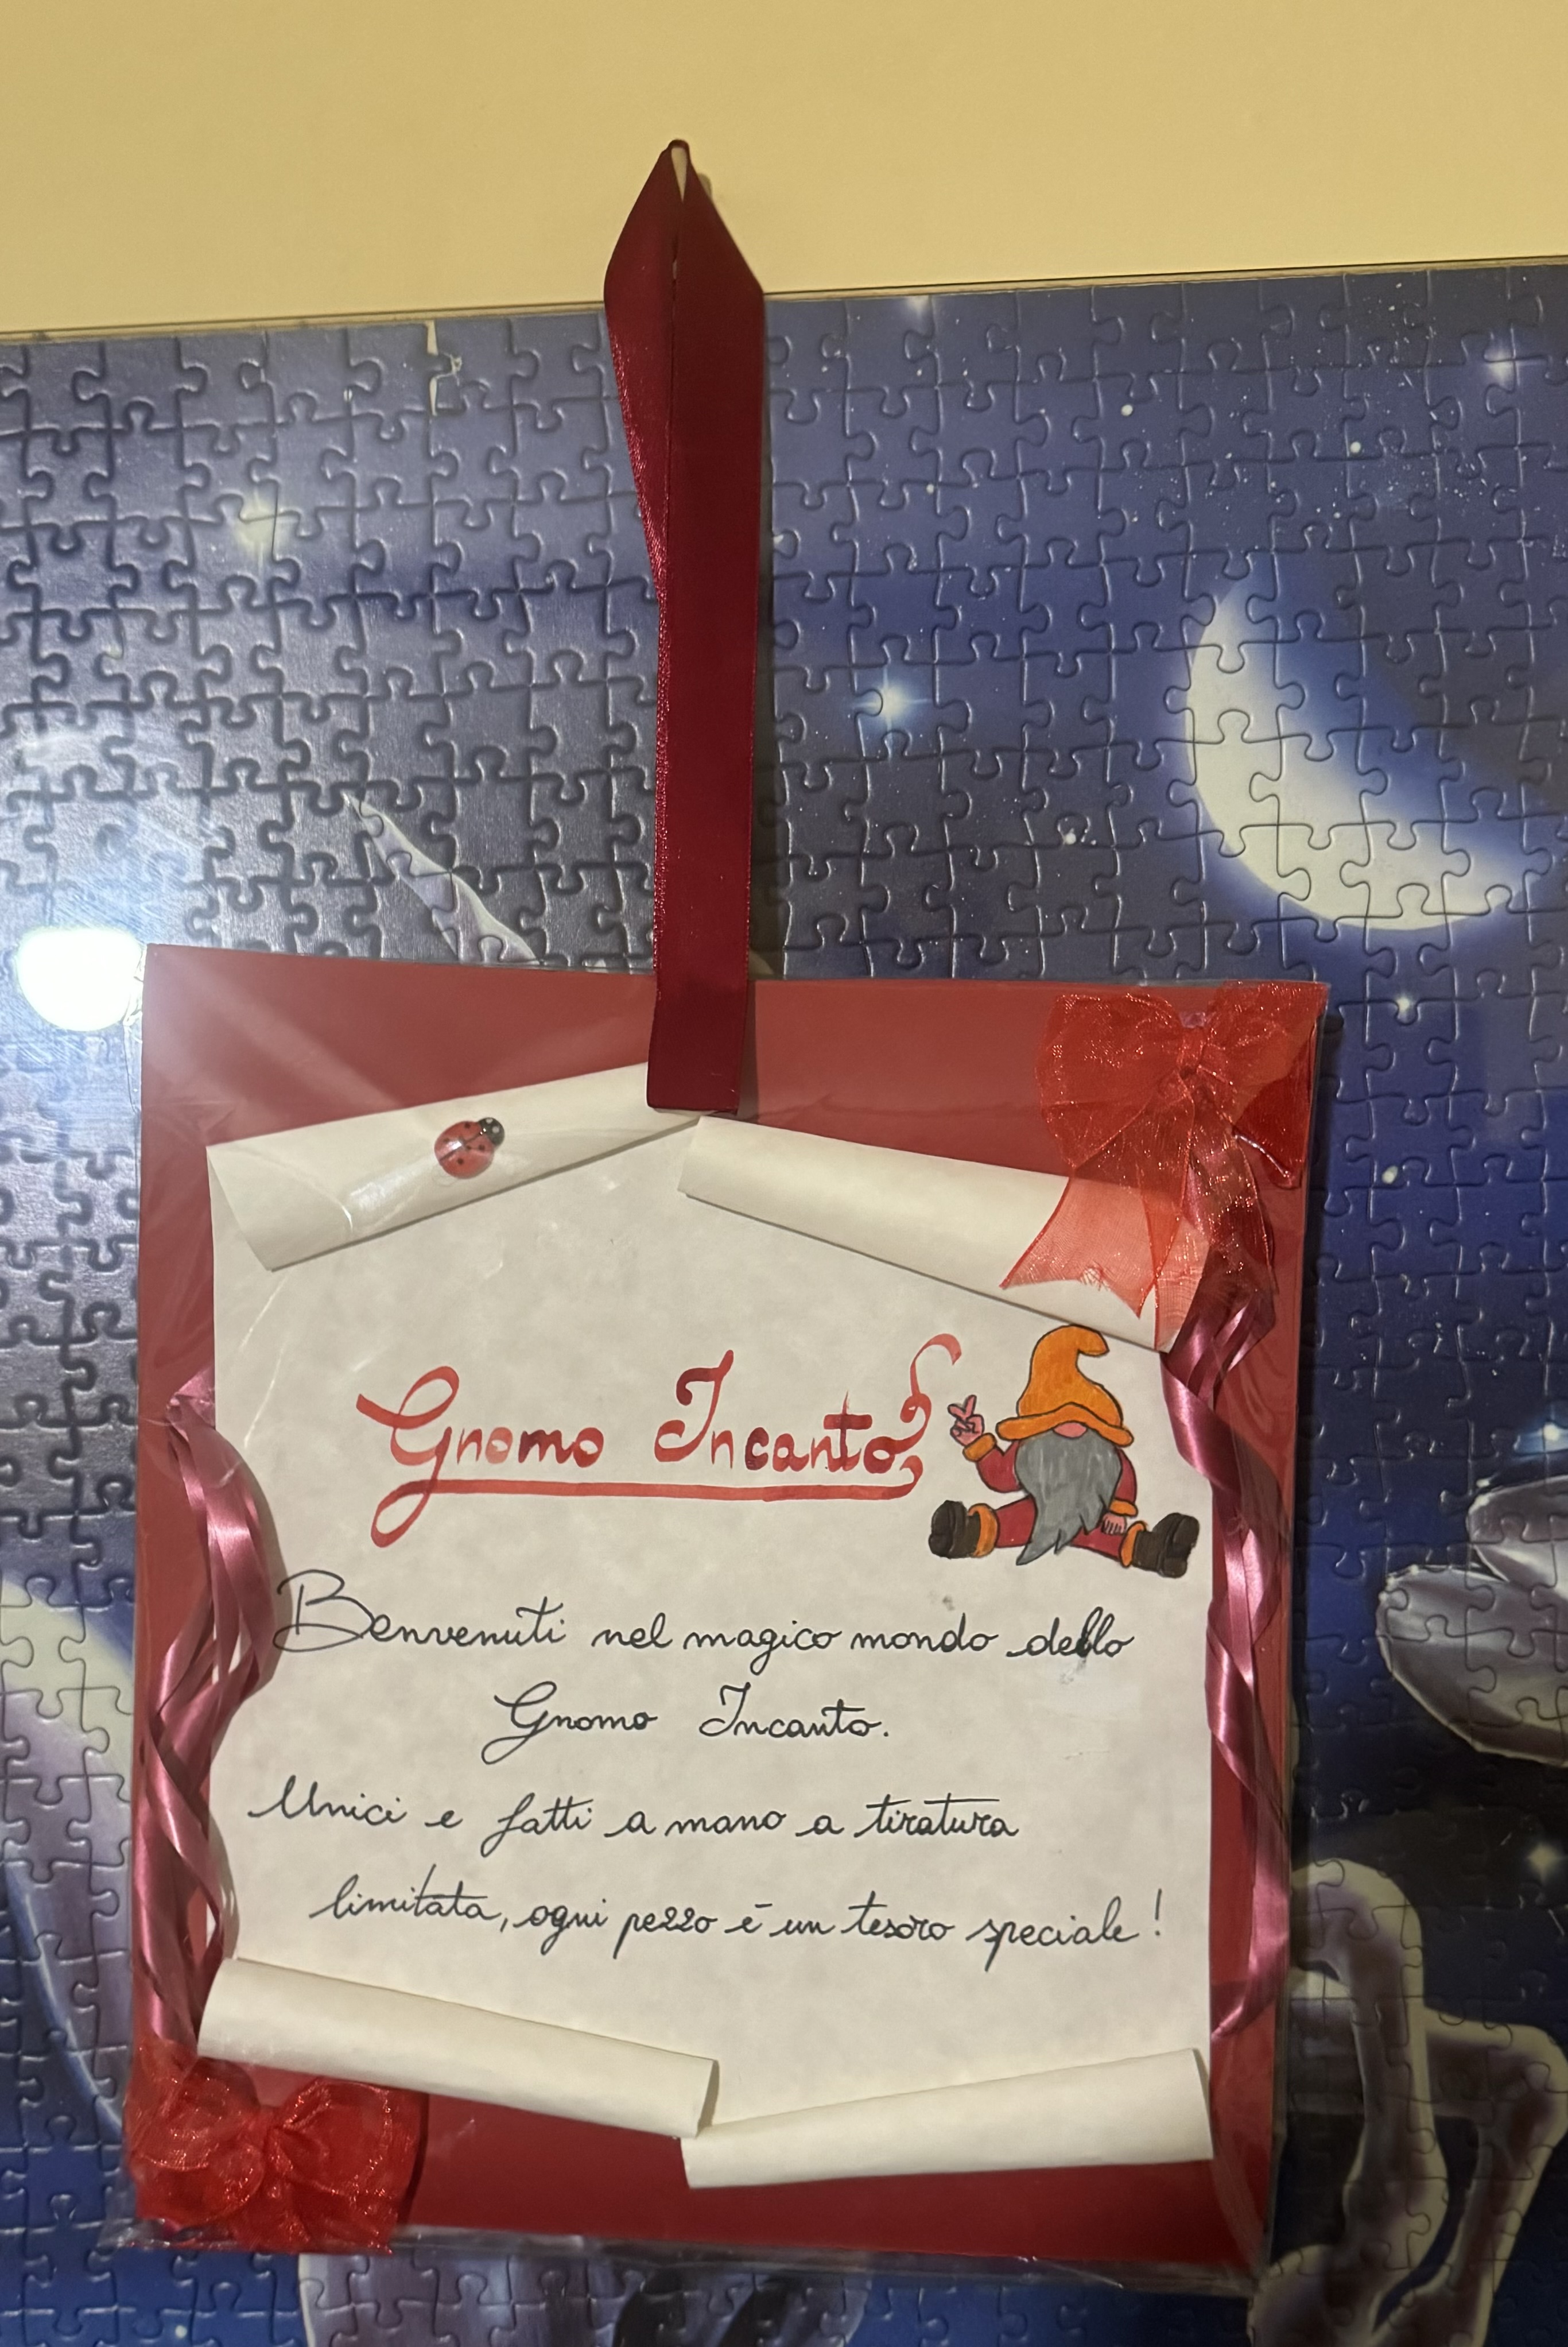 Gnomo Incanto
Benvenuti nel magico mondo dello
Gnomo Incanto.
Unici e fatti a mano a tiratura
limitata, ogni pezzo è un tesoro speciale!